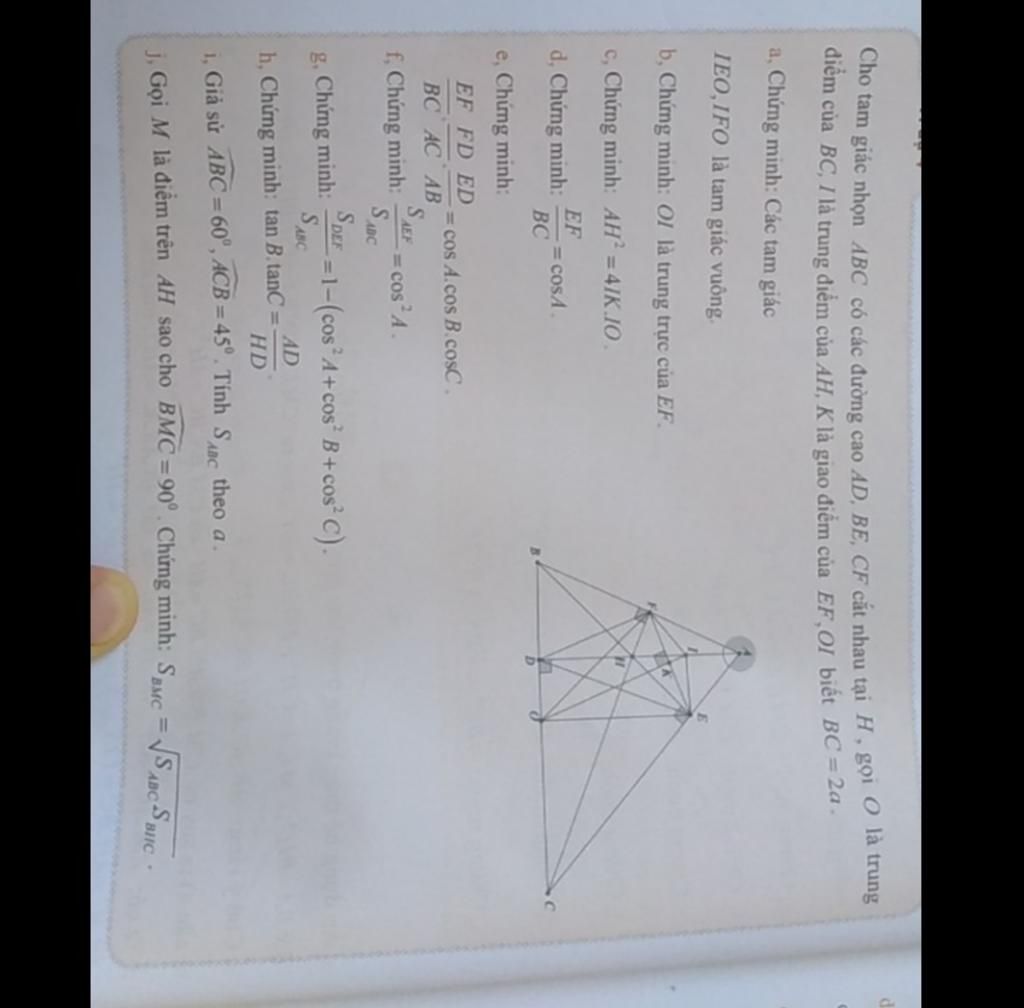 Cho tam giác nhọn ABC có các đường cao AD, BE, CF cắt nhau tại H, gọi O là trung
điểm của BC, I là trung điểm của AH, K là giao điểm của EF, OI biết BC = 2a.
a, Chứng minh: Các tam giác
IEO, IFO là tam giác vuông.
b, Chứng minh: OI là trung trực của EF.
c, Chứng minh: AH² = 4IK.IO.
d, Chứng minh: EF/BC = cosA.
e, Chứng minh:
EF/BC . FD/AC . ED/AB = cos A.cos B.cosC.
f, Chứng minh: S_AEF/S_ABC = cos² A.
g, Chứng minh: S_DEF/S_ABC = 1 − (cos² A + cos² B + cos² C).
h, Chứng minh: tan B.tanC = AD/HD.
i, Giả sử ABC = 60⁰, ACB = 45⁰. Tính S_ABC theo a.
j, Gọi M là điểm trên AH sao cho BMC = 90⁰. Chứng minh: S_BMC = √(S_ABC.S_BHC).
A
I
E
F
K
H
B
D
O
C